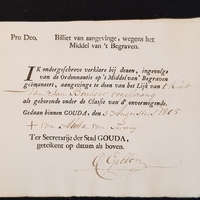 Pro Deo. Billet van aangevinge, wegens het
Middel van 't Begraven.
IK ondergeschreve verklare bij dezen, ingevolge
van de Ordonnantie op 't Middel van't Begraven
geëmaneert, aangevinge te doen van het Lijk van 't kind
van Jan
als gehorende onder de Classis van d' onvermogende.
Gedaan binnen GOUDA, den 3 Augustus 1805
van
Ter Secretarije der Stad GOUDA,
geteikent op datum als boven.